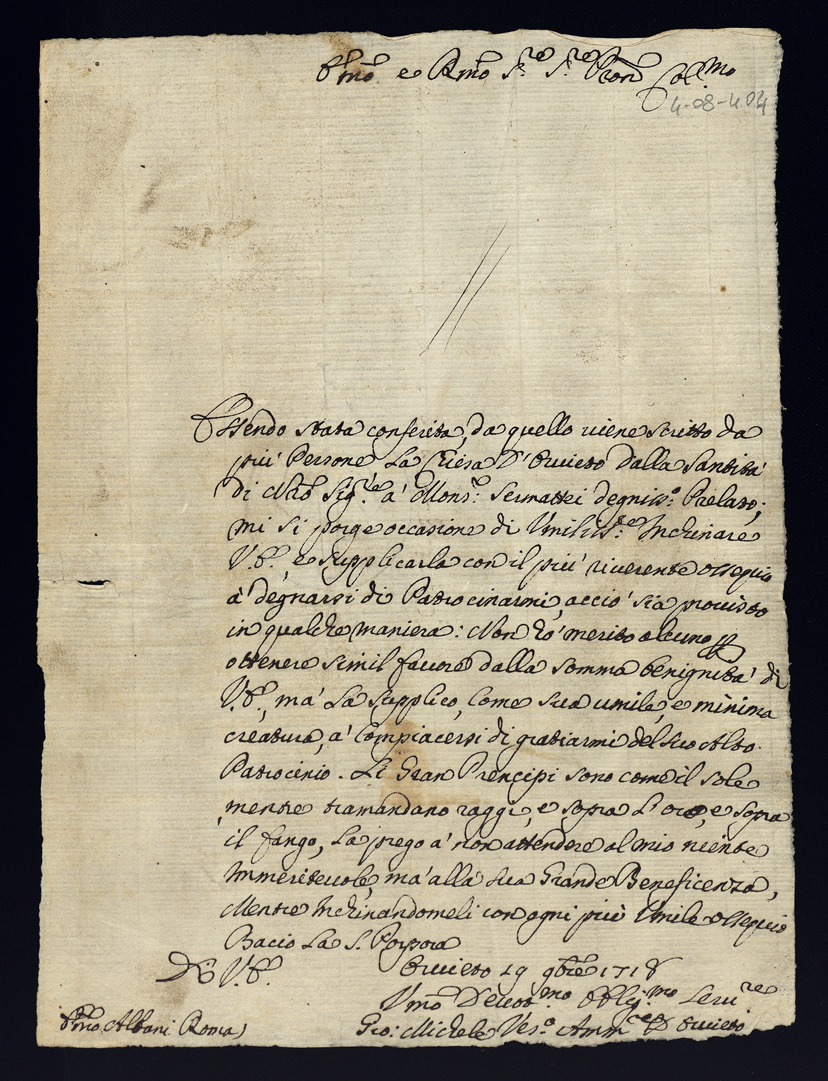 Emo e Rmo Sre Sre Pron Colmo
4-08-404
Essendo stata conferita, da quello viene scritto da
più Persone La Chiesa D'Orvieto dalla Santità
di Nro Sigre à Monsr: Sermattei degniss:o Prelato;
mi si porge occasione di Umiliss:te Inchinare
V.E., e supplicarla con il più riverente ossequio
à degnarsi di Patrocinarmi, acciò sia provisto
in qualche maniera: Non hò merito alcuno
ottenere simil favore dalla somma benignità di
V.E., mà La supplico, come sua umile, e minima
creatura, à compiacersi di gratiarmi del suo Alto
Patrocinio. Li Gran Prencipi sono come il sole
mentre tramandano raggi, e sopra l'oro, e sopra
il fango, La prego à non attendere al mio niente
Immeritevole, mà alla sua Grande Beneficenza,
Mentre Inchinandomeli con ogni più Umile ossequio
Bacio La S. Porpora
Di V.E. Orvieto 19 9bre 1718
Umo Devotmo Obligmo Servre
Emo Albani Roma) Gio: Michele Ves:o Amm:re D'Orvieto